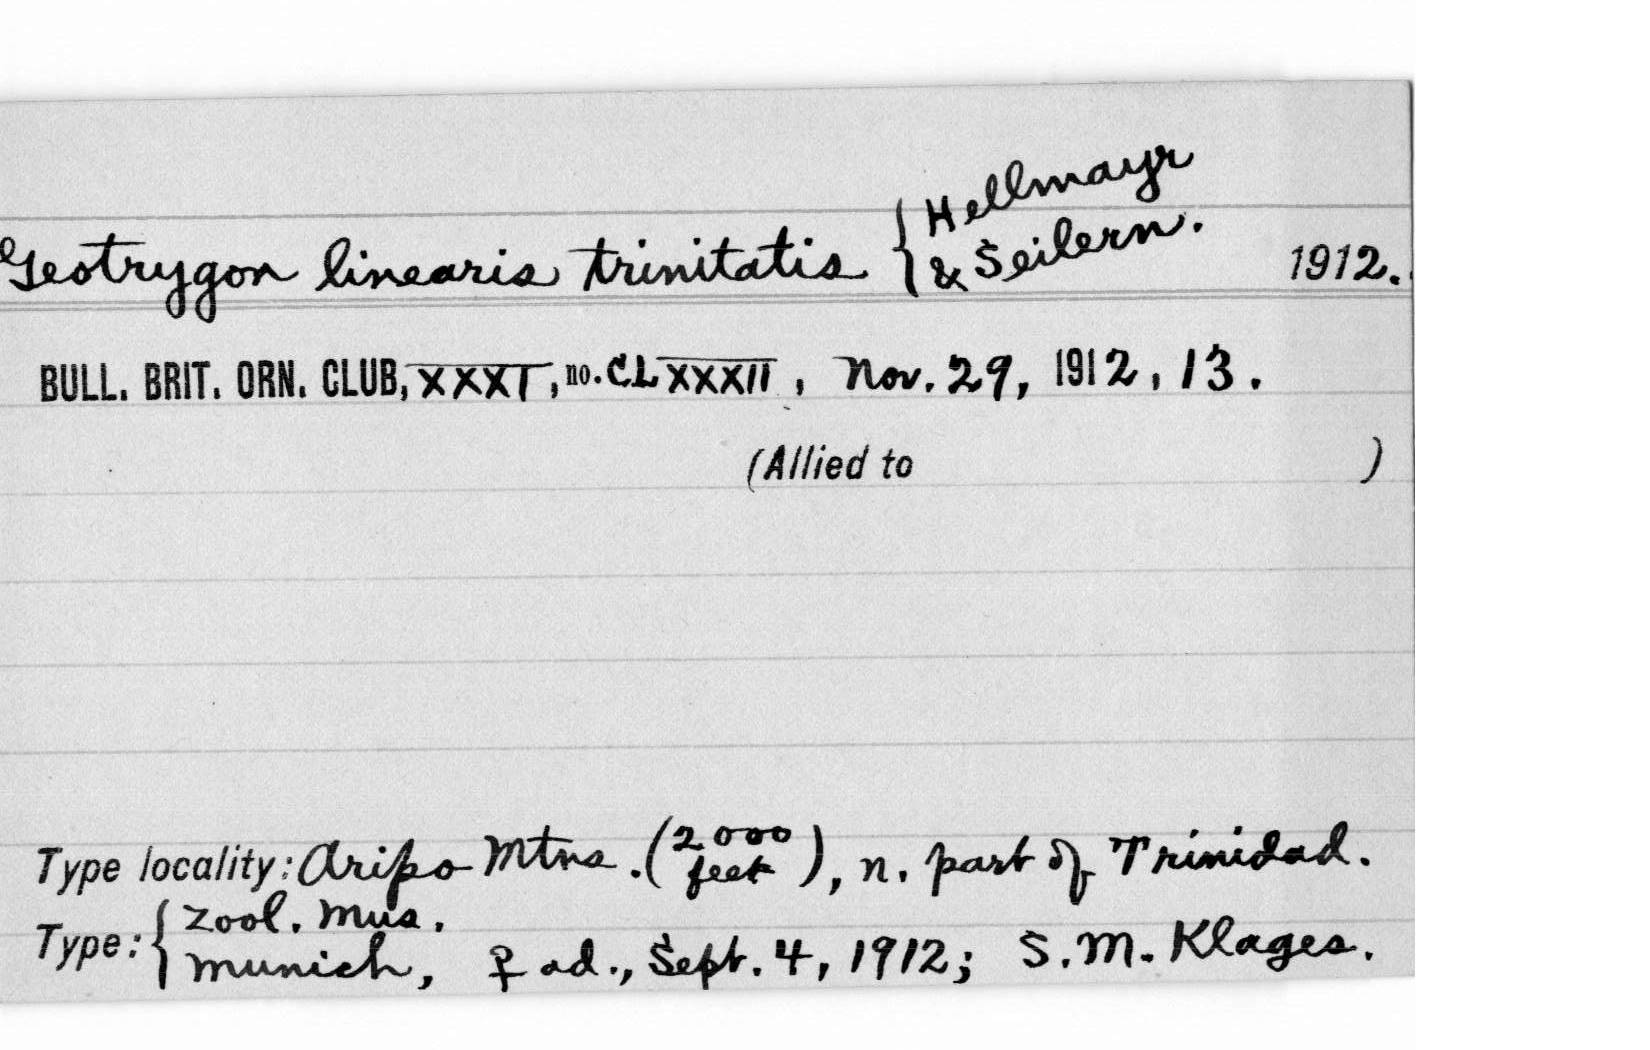 Geotrygon linearis trinitatis { Hellmayr
& Seilern. 1912.
BULL. BRIT. ORN. CLUB, XXXI, no. CLXXXII, Nov. 29, 1912, 13.
(Allied to )
Type locality: Aripo Mtns. (2000 feet), n. part of Trinidad.
Type: { Zool. Mus.
Munich, ♀ ad., Sept. 4, 1912; S. M. Klages.